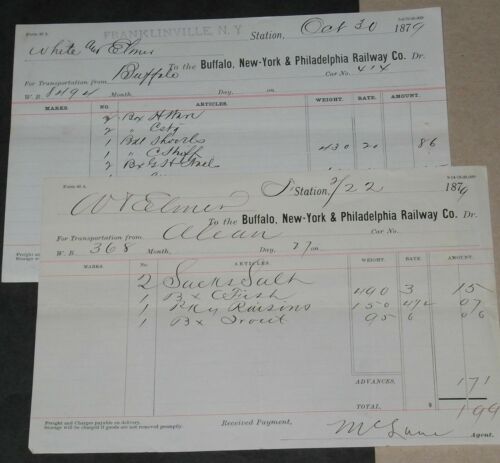 Form 40 A.
FRANKLINVILLE, N.Y
Station, Oct 30 1879
White and Elmer
To the Buffalo, New-York & Philadelphia Railway Co. Dr.
For Transportation from Buffalo Car No. 414
W. B. 8494 Month, Day, on
MARKS. NO. ARTICLES. WEIGHT. RATE. AMOUNT.
2 Box H Ware
2 "
1 Bdl Shovels
1 " 430 20 86
2 Bx
Freight and
Storage will
Form 40 A.
Station, 2/22 1879
W T Elmer
To the Buffalo, New-York & Philadelphia Railway Co. Dr.
For Transportation from Olean Car No.
W. B. 368 Month, Day, 21 on
MARKS. No. ARTICLES. WEIGHT. RATE AMOUNT.
2 Sacks Salt 490 3 15
1 Bx C Fish
1 Pkg Raisins 150 4 1/2 07
1 Bx Trout 95 6 06
ADVANCES, 171
TOTAL, $ 199
Freight and Charges payable on delivery.
Storage will be charged if goods are not removed promptly.
Received Payment,
McLane Agent.